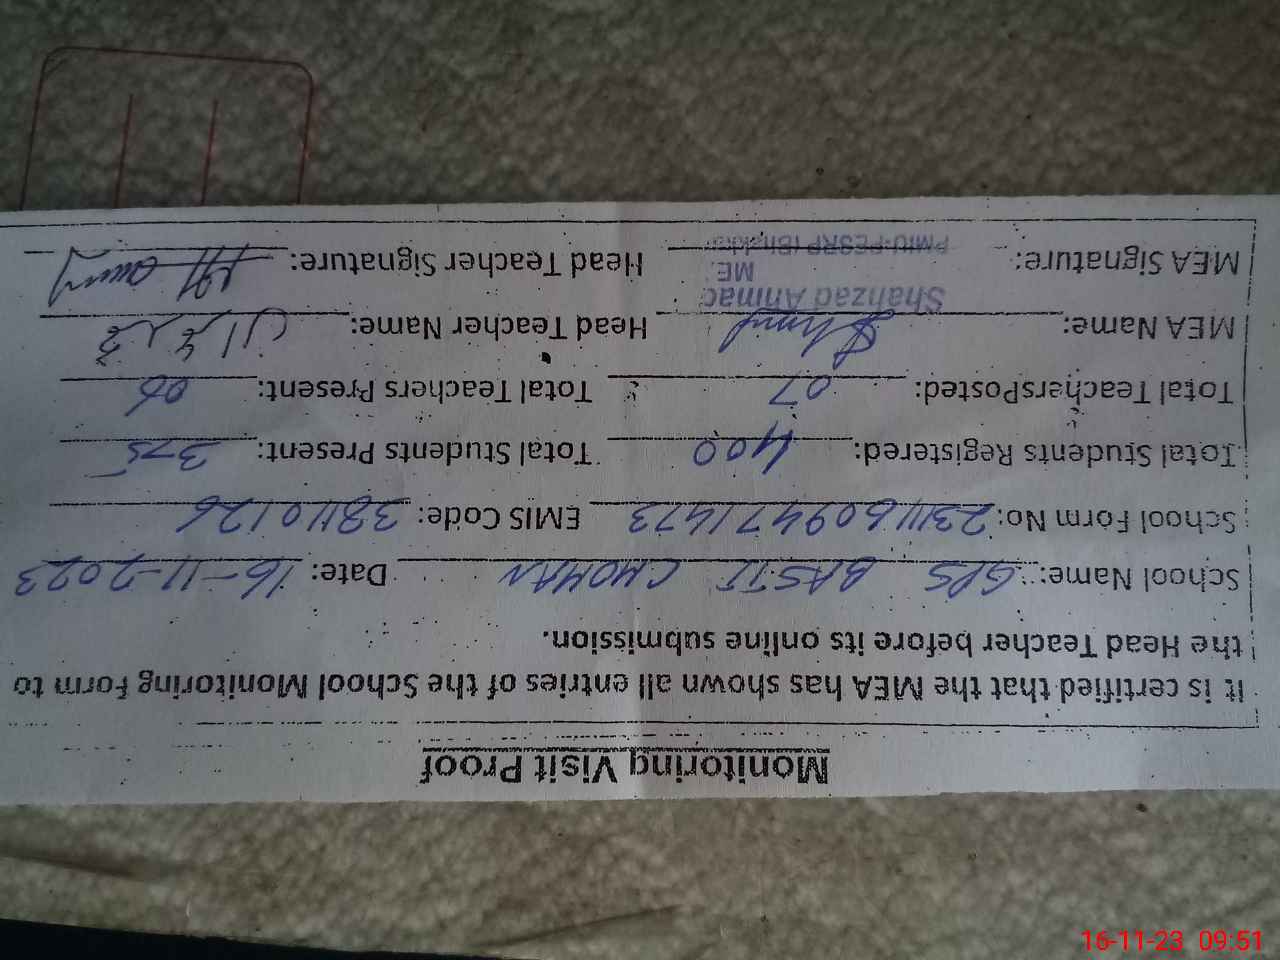 Monitoring Visit Proof
It is certified that the MEA has shown all entries of the School Monitoring Form to
the Head Teacher before its online submission.
School Name: GPS BASTI CHOHAN Date: 16-11-2023
School Form No: 231116094771473 EMIS Code: 38110126
Total Students Registered: 400 Total Students Present: 375
Total Teachers Posted: 07 Total Teachers Present: 06
MEA Name: Head Teacher Name:
Shahzad Ahmad
ME
MEA Signature: PMIU-PESRP Head Teacher Signature:
16-11-23 09:51